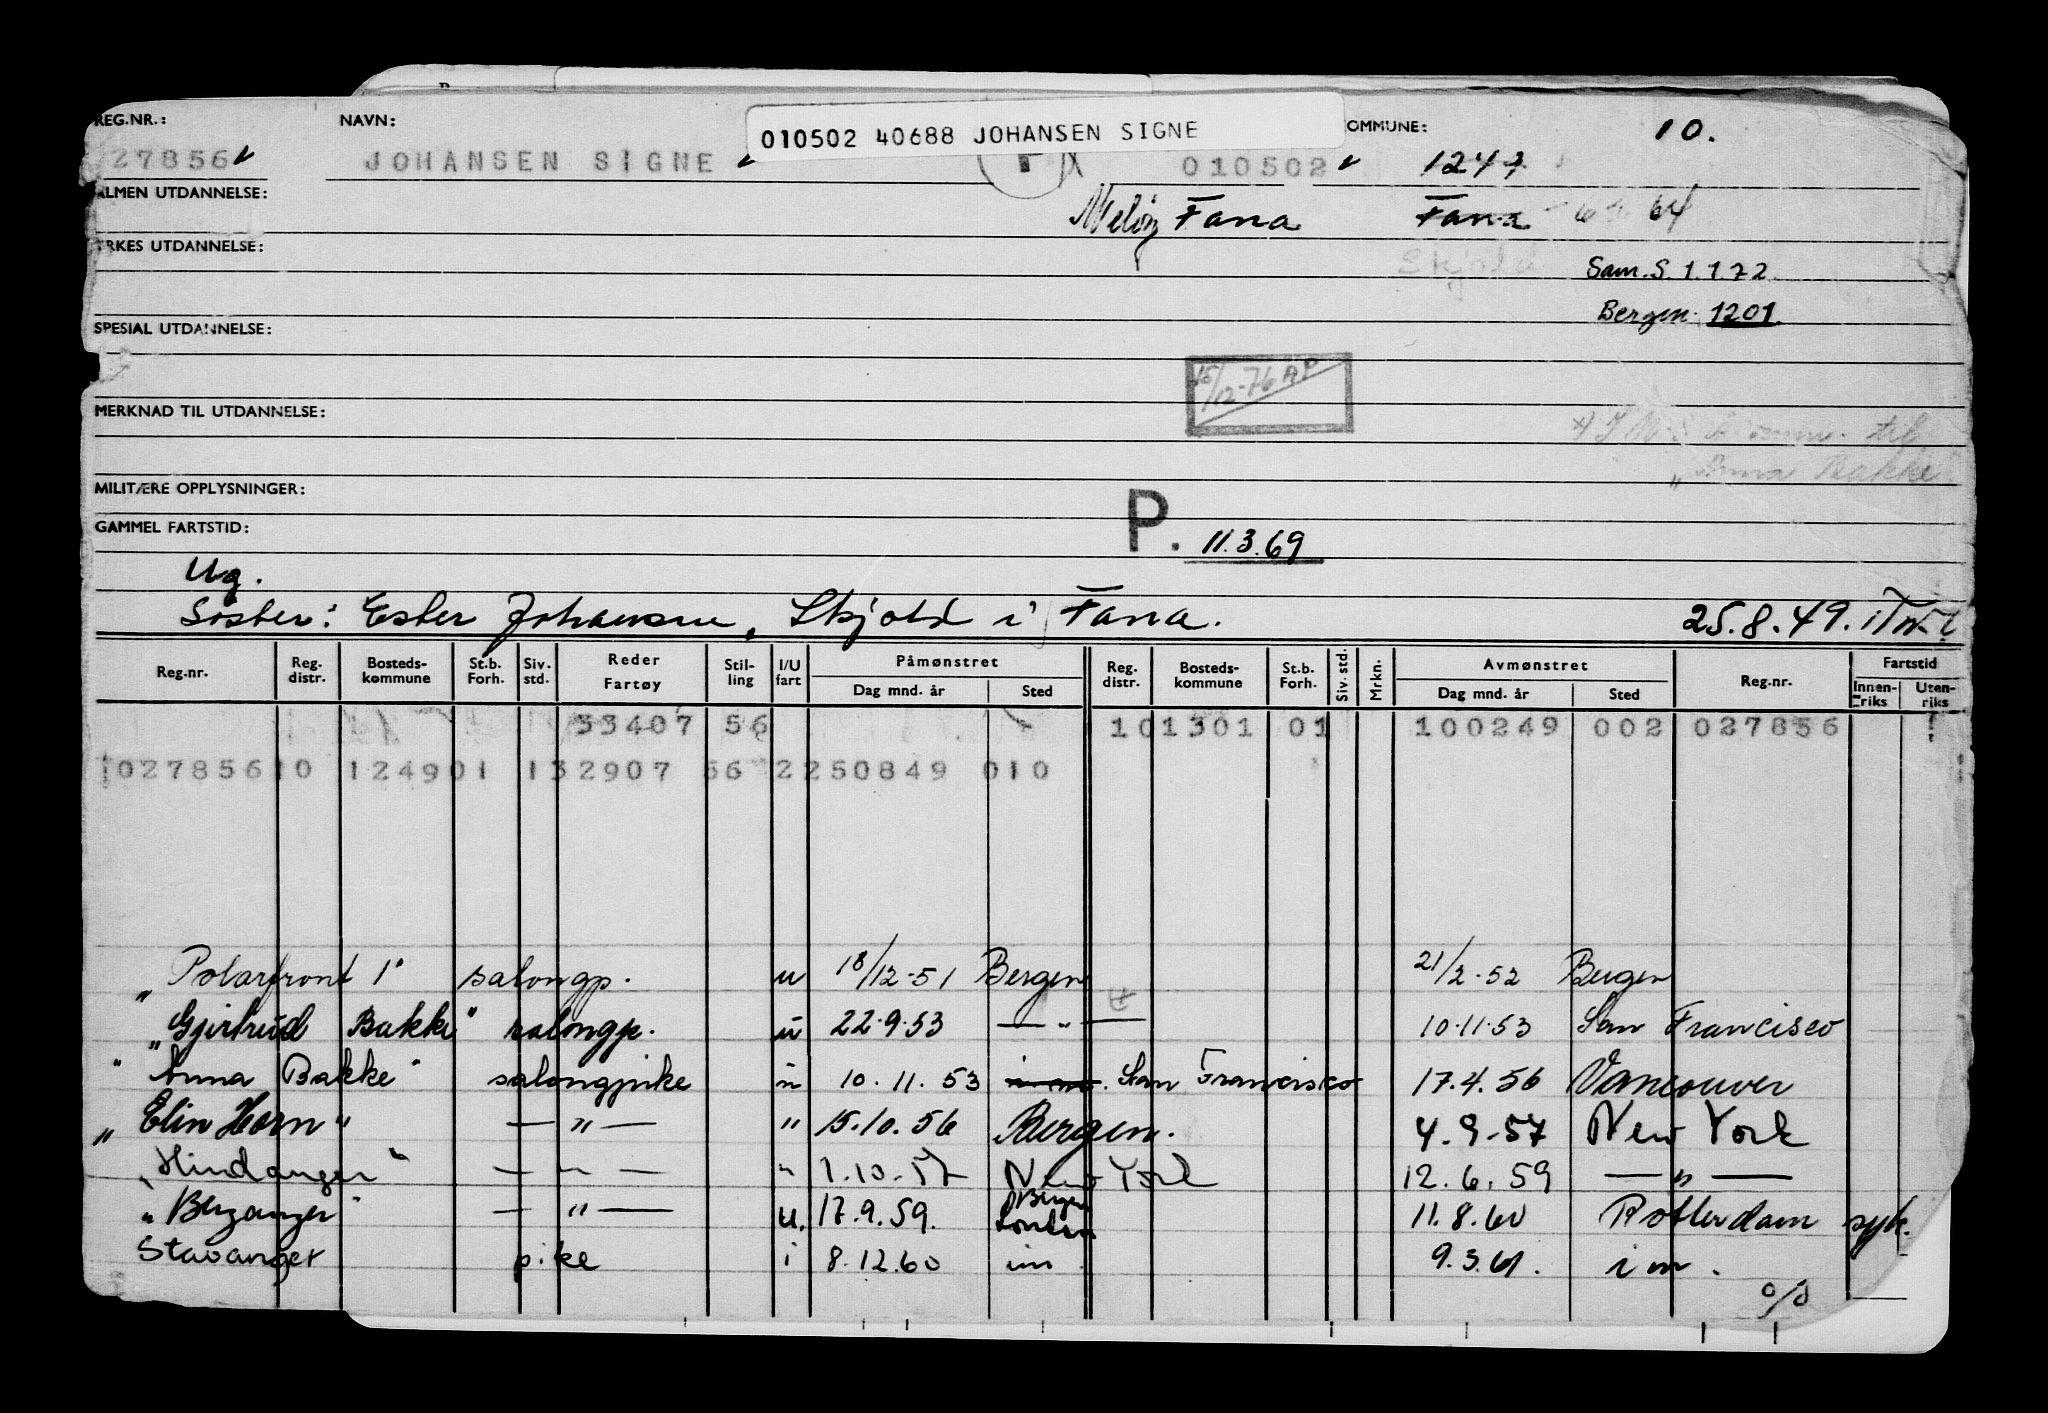 010502 40688 JOHANSEN SIGNE
REG.NR.: NAVN: OMMUNE: 10.
27856 JOHANSEN SIGNE 010502 1247
ALMEN UTDANNELSE: Meløy Fana Fana 64
YRKES UTDANNELSE:
Skjold Sam.S. 1.1.72.
Bergen 1201
SPESIAL UTDANNELSE:
15/12-76 AP
MERKNAD TIL UTDANNELSE:
til
"Anna Bakke"
MILITÆRE OPPLYSNINGER:
P. 11.3.69
GAMMEL FARTSTID:
Ug.
Søster: Ester Johansen, Skjold i Fana. 25.8.49.
Reg.nr. Reg. distr. Bosteds-kommune St.b. Forh. Siv. std. Reder Fartøy Stil-ling I/U fart Påmønstret Dag mnd. år Sted Reg. distr. Bosteds-kommune St.b. Forh. Siv. std. Mrkn. Avmønstret Dag mnd. år Sted Reg.nr. Fartstid Innen-riks Uten-riks
33407 56 101301 01 100249 002 027856
027856 10 124901 132907 56 2250849 010
"Polarfront 1" salongp. u 18/12-51 Bergen 21/2-52 Bergen
"Gjertrud Bakke" salongp. u 22.9.53 — " — 10.11.53 San Francisco
"Anna Bakke" salongpike " 10.11.53 San Francisco 17.4.56 Vancouver
"Elin Horn" — " — " 15.10.56 Bergen. 4.9.57 New York
"Hindanger" — " — " 1.10.57 New York 12.6.59 — " —
"Berganger" — " — u. 17.9.59. Bergen London 11.8.60 Rotterdam syk.
Stavanger pike i 8.12.60 im 9.3.61. im.
o/s